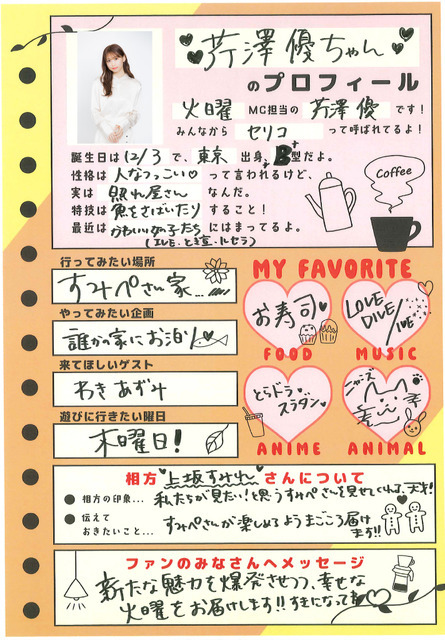 芹澤優ちゃん
のプロフィール
火曜 MC担当の 芹澤優 です!
みんなから セリコ って呼ばれてるよ!
誕生日は 12/3 で、東京 出身、B型だよ。
性格は 人なつっこい って言われるけど、
実は 照れ屋さん なんだ。
特技は 魚をさばいたり すること!
最近は かわいい女の子たち にはまってるよ。
Coffee
行ってみたい場所
すみぺさん家…
やってみたい企画
誰かの家にお泊り
来てほしいゲスト
わきあずみ
遊びに行きたい曜日
木曜日!
MY FAVORITE
お寿司
FOOD
LOVE DIVE/IVE
MUSIC
とらドラ
スラダン
ANIME
ANIMAL
相方 上坂すみれ さんについて
相方の印象…
私たちが見たい!と思うすみぺさんを見せてくれる、天才!
伝えておきたいこと…
すみぺさんが楽しめるようまごころ届けます!!
ファンのみなさんへメッセージ
新たな魅力を爆発させつつ、幸せな
火曜をお届けします!!すきになってね